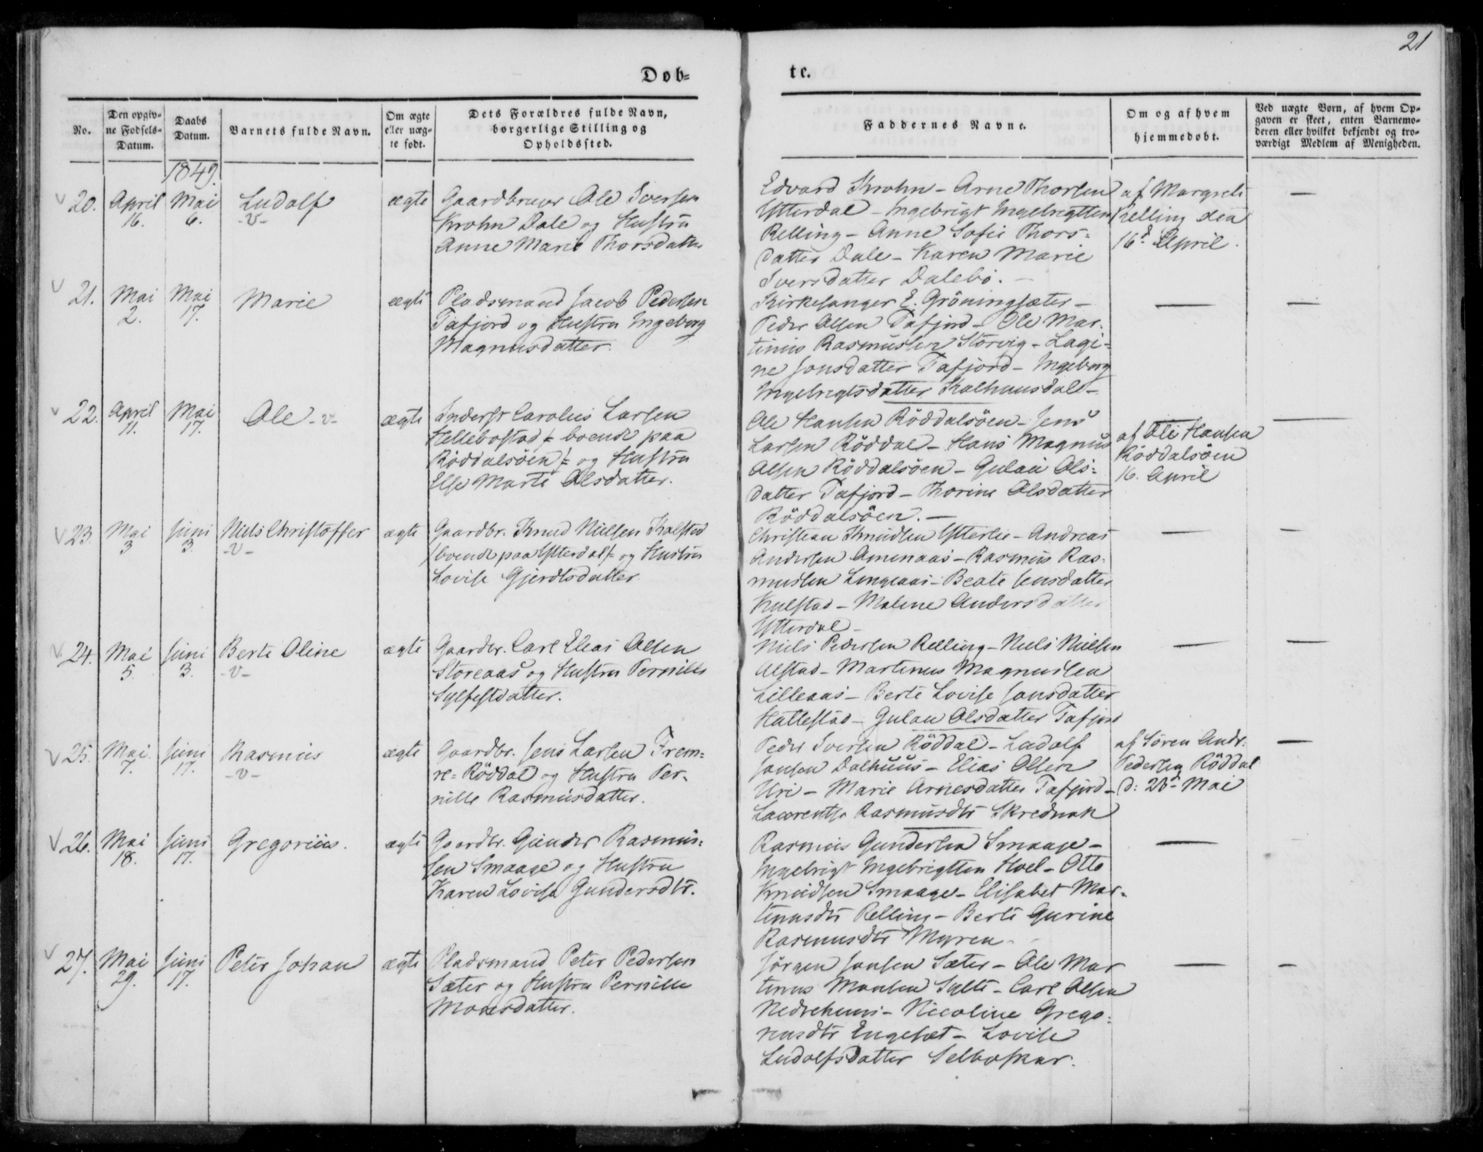 21
Døb-
te.
No.
Den opgiv-
ne Fødsels-
Datum.
Daabs
Datum.
Barnets fulde Navn.
Om ægte
eller uæg-
te født.
Dets Forældres fulde Navn,
borgerlige Stilling og
Opholdssted.
Faddernes Navne.
Om og af hvem
hjemmedøbt.
Ved uægte Børn, af hvem Op-
gaven er skeet, enten Barnemo-
deren eller hvilket bekjendt og tro-
værdigt Medlem af Menigheden.
1849.
20. April 16. Mai 6. Ludolf -v- ægte
Gaardbruger Ole Iversen
Krohn Dale og Hustru
Anne Marie Thorsdatter
Edvard Krohn - Arne Thorsen
Ytterdal - Ingebrigt Ingebrigtsen
Relling - Anne Sofie Thors-
datter Dale - Karen Marie
Iversdatter Dalebø. -
af Margrete
Relling den
16d April.
21. Mai 2. Mai 17. Marie ægte
Pladsmand Jacob Pedersen
Tafjord og Hustru Ingeborg
Magnusdatter.
Kirkesanger E. Grönningsæter -
Peder Olsen Tafjord - Ole Mar-
tinus Rasmussen Storvig - Lagi-
ne Jonsdatter Tafjord - Ingeborg
Ingebrigtsdatter Kalhuusdal -
22. April 11. Mai 17. Ole -v- ægte
Inderst Carolus Larsen
Hellebostad /: boende paa
Röddalsöen :/ og Hustru
Else Marte Olsdatter.
Ole Hansen Röddalsöen - Jens
Larsen Röddal - Hans Magnus
Olsen Röddalsöen - Gulau Ols-
datter Tafjord - Thorine Olsdatter
Röddalsöen. -
af Ole Hansen
Röddalsöen
16. April
23. Mai 3 Juni 3. Niels Christoffer -v- ægte
Gaardbr. Knud Nielsen Kalstad
/boende paa Ytterdal/ og Hustru
Lovise Gjertsdatter
Christian Knudsen Ytterlie - Andreas
Andersen Omenaas - Rasmus Ras-
mussen Lingeaas - Beate Jensdatter
Kulstad - Malene Andersdatter
Ytterdal -
24. Mai 5. Juni 3. Berte Oline -v- ægte
Gaardbr. Carl Elias Olsen
Storeaas og Hustru Pernille
Sylfestdatter.
Niels Pedersen Relling - Niels Nielsen
Alstad - Martinus Magnussen
Lilleaas - Berte Lovise Jonsdatter
Hattestad - Gulau Olsdatter Tafjord
25. Mai 7. Juni 17. Rasmus -v- ægte
Gaardbr. Jens Larsen Frem-
re-Röddal og Hustru Per-
nille Rasmusdatter.
Peder Iversen Röddal - Ludolf
Jonsen Dalhuus - Elias Olsen
Uri - Marie Arnesdatter Tafjord -
Laurentse Rasmusdtr Skrednak
af Sören Andr.
Pedersen Röddal
d: 20d Mai
26. Mai 18. Juni 17. Gregorius. ægte
Gaardbr. Gunder Rasmus-
sen Smaage og Hustru
Karen Lovise Gundersdtr.
Rasmus Gundersen Smaage -
Ingebrigt Ingebrigtsen Hoel - Otto
Knudsen Smaage - Elisabet Mar-
tinusdtr Relling - Berte Gurine
Rasmusdtr Myren -
27. Mai 29. Juni 17. Peter Johan ægte
Pladsmand Peter Pedersen
Sæter og Hustru Pernille
Monsdatter.
Jörgen Jonsen Sæter - Ole Mar
tinus Monsen Sylte - Carl Olsen
Nedrehuus - Nicoline Grego-
riusdtr Engeset - Lovise
Ludolfsdatter Selboskar.